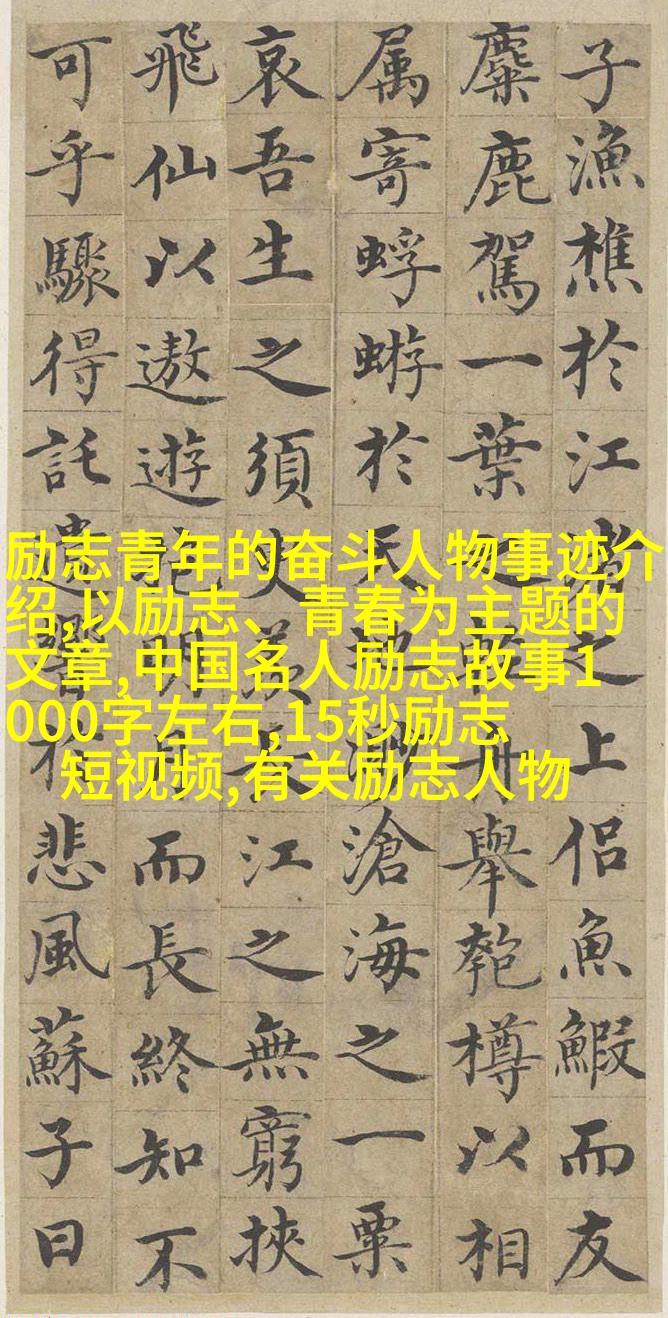 子漁樵於江渚之上侶魚鰕而友
麋鹿駕一葉之扁舟舉匏樽以相
属寄蜉蝣於天地渺滄海之一粟
哀吾生之須臾羨長江之無窮挾
飛仙以遨遊抱明月而長終知不
可乎驟得託遺響於悲風蘇子曰
励志青年的奋斗人物事迹介
绍,以励志、青春为主题的
文章,中国名人励志故事1
000字左右,15秒励志
短视频,有关励志人物